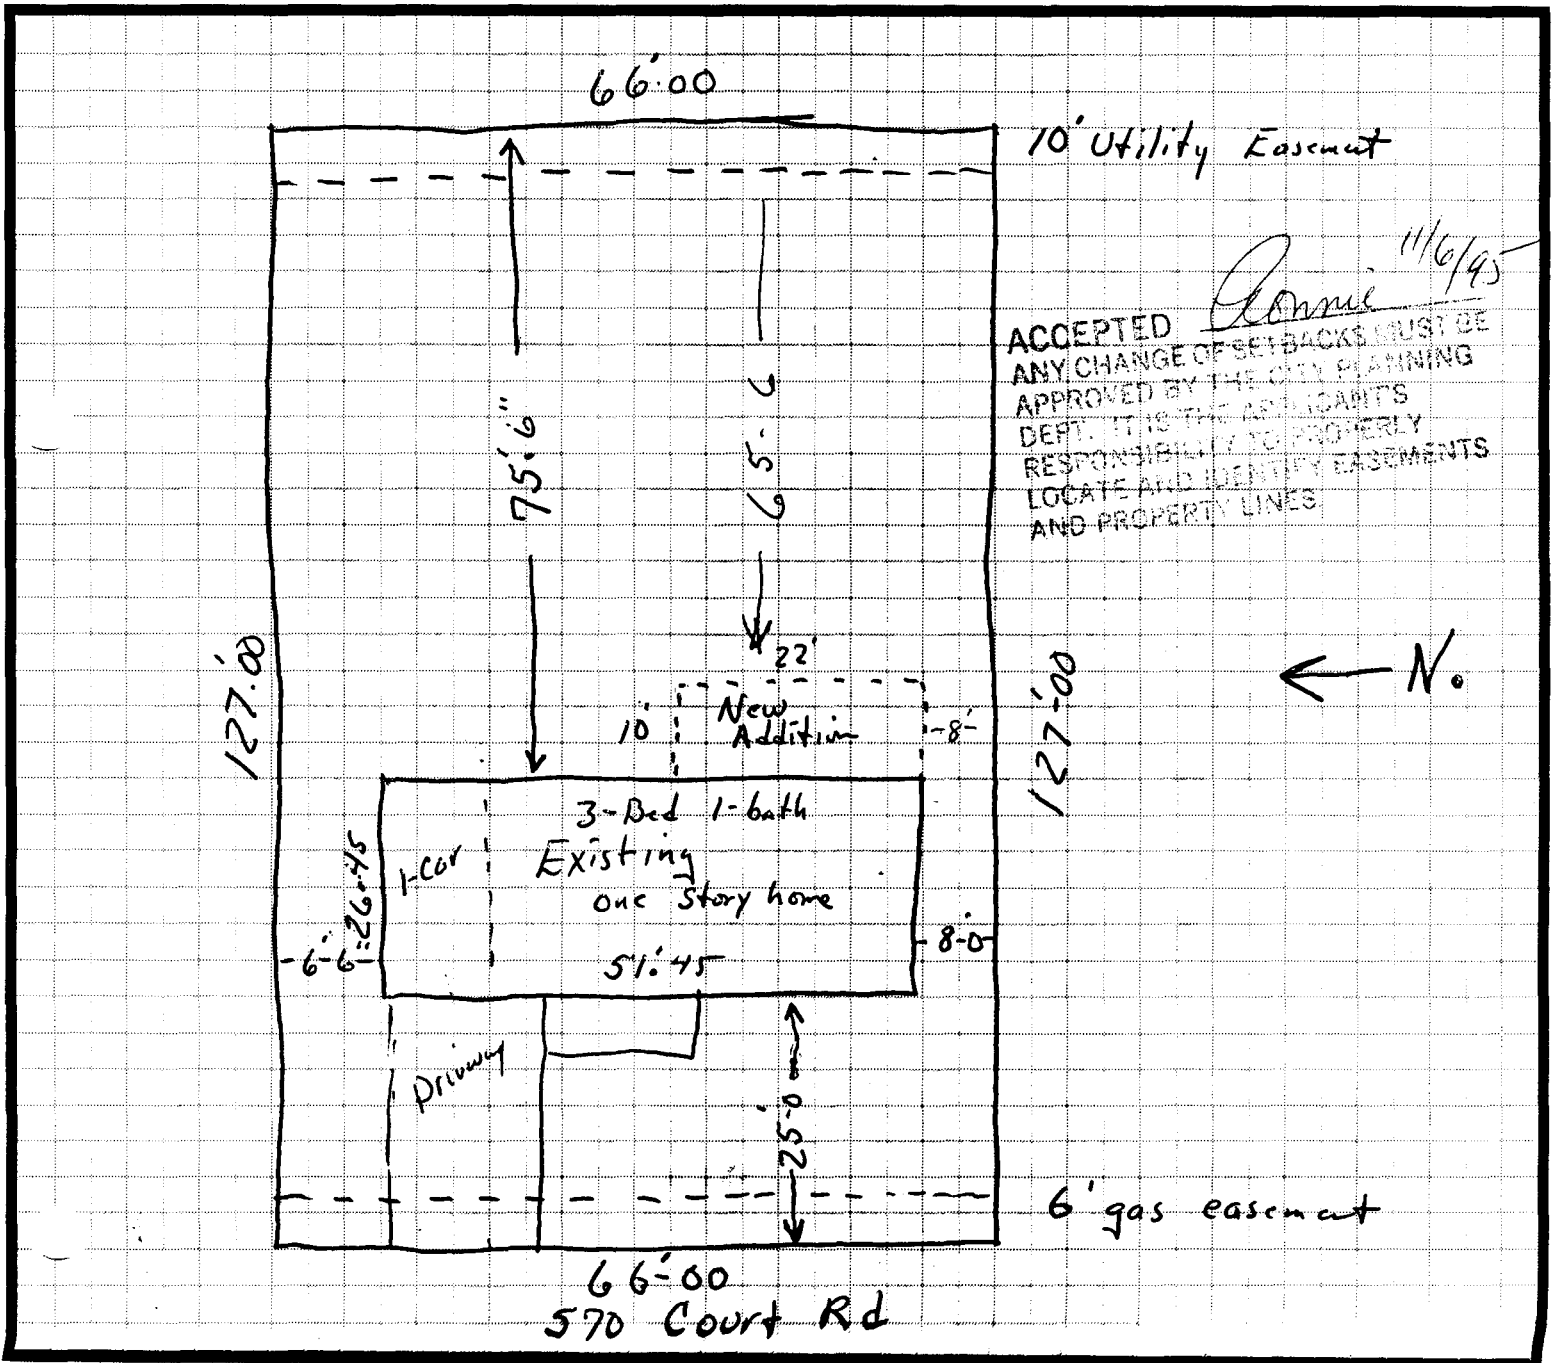 66'.00
10' Utility Easement
11/6/95
ACCEPTED Ronnie
ANY CHANGE OF SETBACKS MUST BE
APPROVED BY THE CITY PLANNING
DEPT. IT IS THE APPLICANT'S
RESPONSIBILITY TO PROPERLY
LOCATE AND IDENTIFY EASEMENTS
AND PROPERTY LINES.
75'.6"
65-6
127'.00
127'-00
← N.
22'
10'
New
Addition
-8'-
3-Bed 1-bath
1-Car
Existing
one story home
26.45
-6'-6"
51'.45
8'-0-
Driveway
25'-0
6' gas easement
66'-00
570 Court Rd